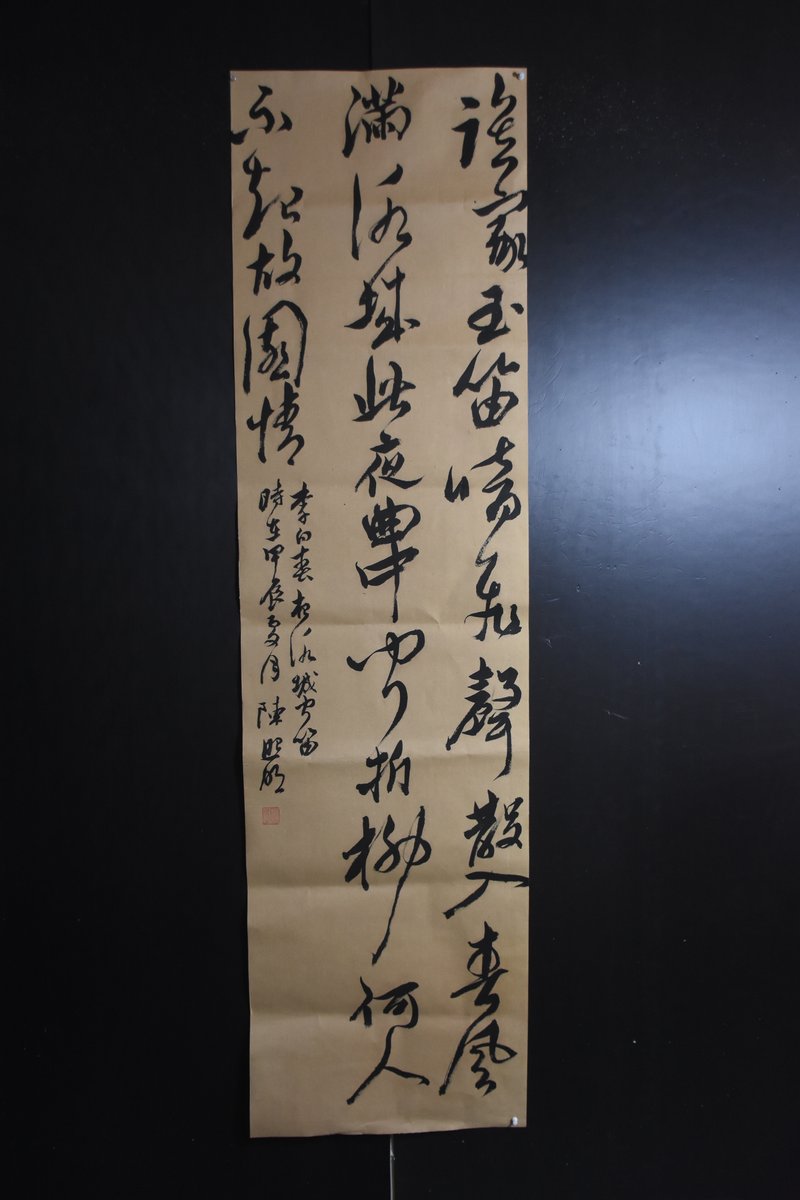 誰家玉笛暗飛聲散入春風
滿洛城此夜曲中聞折柳何人
不起故園情
李白春夜洛城聞笛
時在甲辰夏月 陳照明